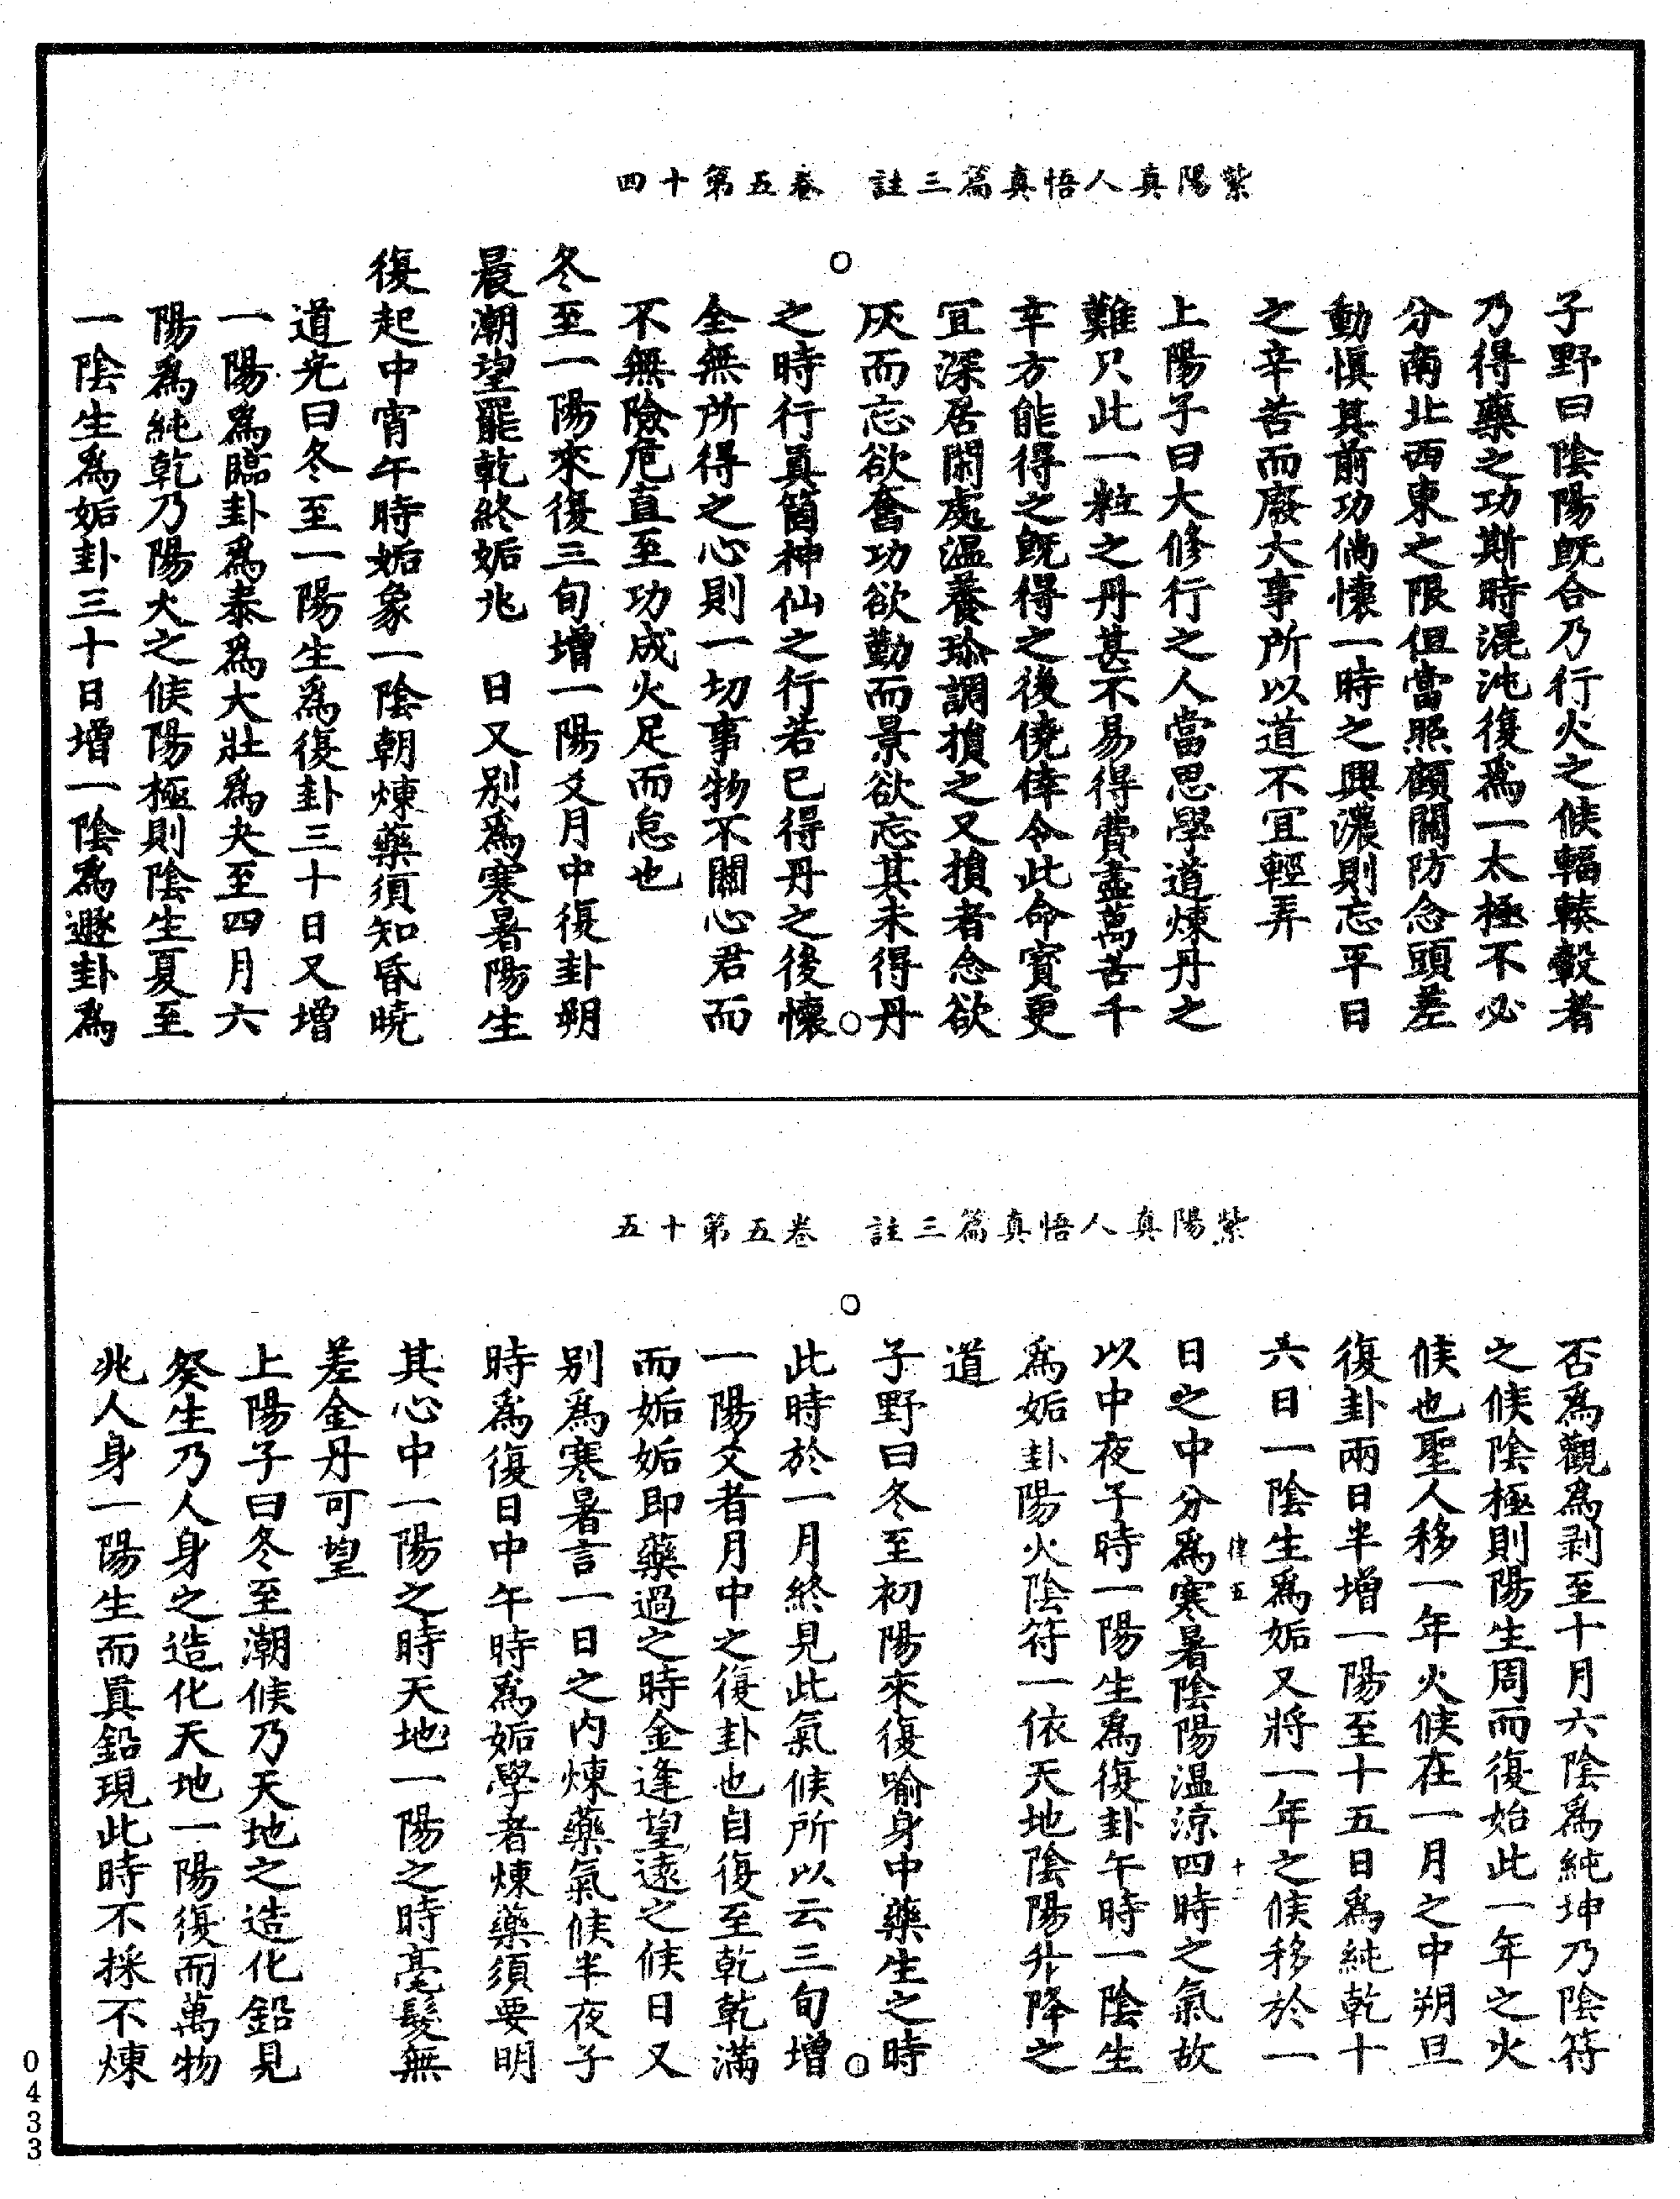 紫陽真人悟真篇三註 卷五第十四
子野曰陰陽既合乃行火之候輻輳轂者
乃得藥之功斯時混沌復爲一太極不必
分南北西東之限但當照顧關防念頭差
動慎其前功倘懷一時之興濃則忘平日
之辛苦而廢大事所以道不宜輕弄
上陽子曰大修行之人當思學道煉丹之
難只此一粒之丹甚不易得費盡萬苦千
辛方能得之既得之後僥倖令此命寶更
宜深居閑處溫養珎調損之又損者念欲
灰而忘欲奮功欲勤而景欲忘其未得丹
之時行真箇神仙之行若已得丹之後懷
全無所得之心則一切事物不關心君而
不無險危直至功成火足而怠也
冬至一陽來復三旬增一陽爻月中復卦朔
晨潮望罷乾終姤兆 日又别爲寒暑陽生
復起中宵午時姤象一陰朝煉藥須知昏曉
道光曰冬至一陽生爲復卦三十日又增
一陽爲臨卦爲泰爲大壯爲夬至四月六
陽爲純乾乃陽火之候陽極則陰生夏至
一陰生爲姤卦三十日增一陰爲遯卦爲
紫陽真人悟真篇三註 卷五第十五
否爲觀爲剥至十月六陰爲純坤乃陰符
之候陰極則陽生周而復始此一年之火
候也聖人移一年火候在一月之中朔旦
復卦兩日半增一陽至十五日爲純乾十
六日一陰生爲姤又將一年之候移於一
律五 十一
日之中分爲寒暑陰陽温涼四時之氣故
以中夜子時一陽生爲復卦午時一陰生
爲姤卦陽火陰符一依天地陰陽升降之
道
子野曰冬至初陽來復喻身中藥生之時
此時於一月終見此氣候所以云三旬增
一陽爻者月中之復卦也自復至乾乾滿
而姤姤即藥過之時金逢望遠之候日又
别爲寒暑言一日之内煉藥氣候半夜子
時爲復日中午時爲姤學者煉藥須要明
其心中一陽之時天地一陽之時毫髮無
差金丹可望
上陽子曰冬至潮候乃天地之造化鉛見
癸生乃人身之造化天地一陽復而萬物
兆人身一陽生而真鉛現此時不採不煉
0433